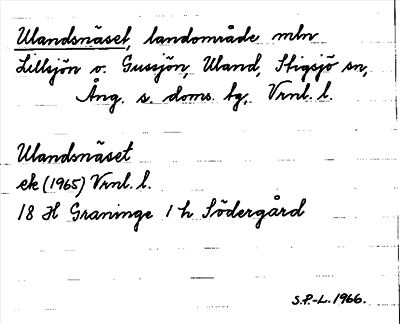 Ulandsnäset, landområde mln
Lillsjön o. Gussjön, Uland, Stigsjö sn,
Ång. s. doms. tg, Vrnl. l.
Ulandsnäset
ek (1965) Vrnl. l.
18 H Graninge 1 h Södergård
S.P.-L. 1966.